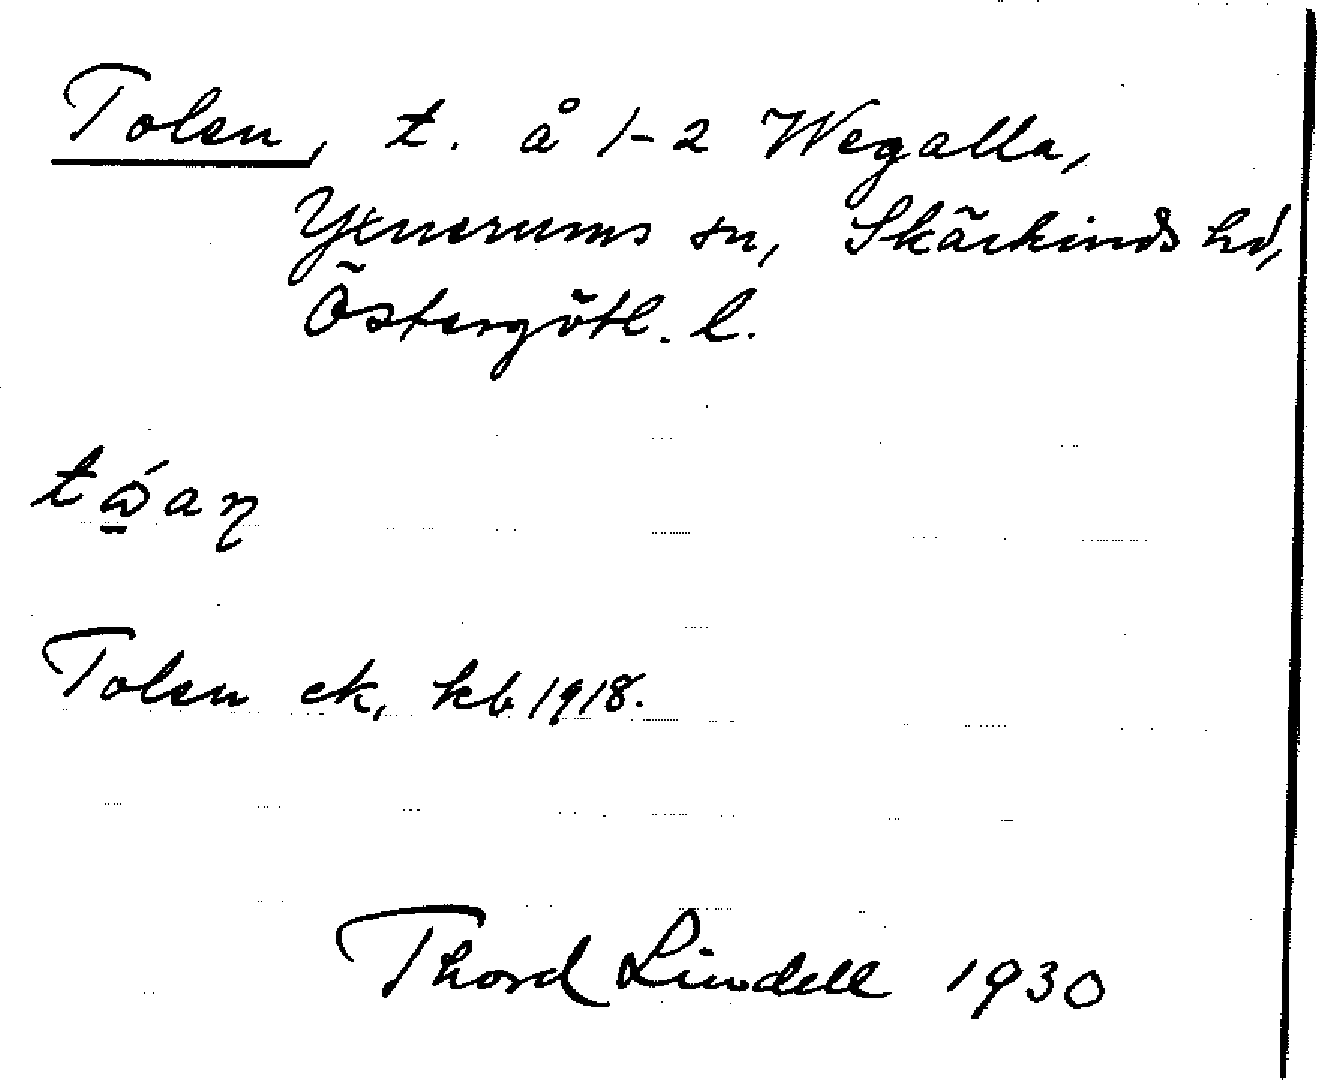 Tolen, t. å 1-2 Wegalla,
Yxnerums sn, Skärkinds hd,
Östergötl. l.
Tolen ck, kb 1918.
Thord Lindell 1930